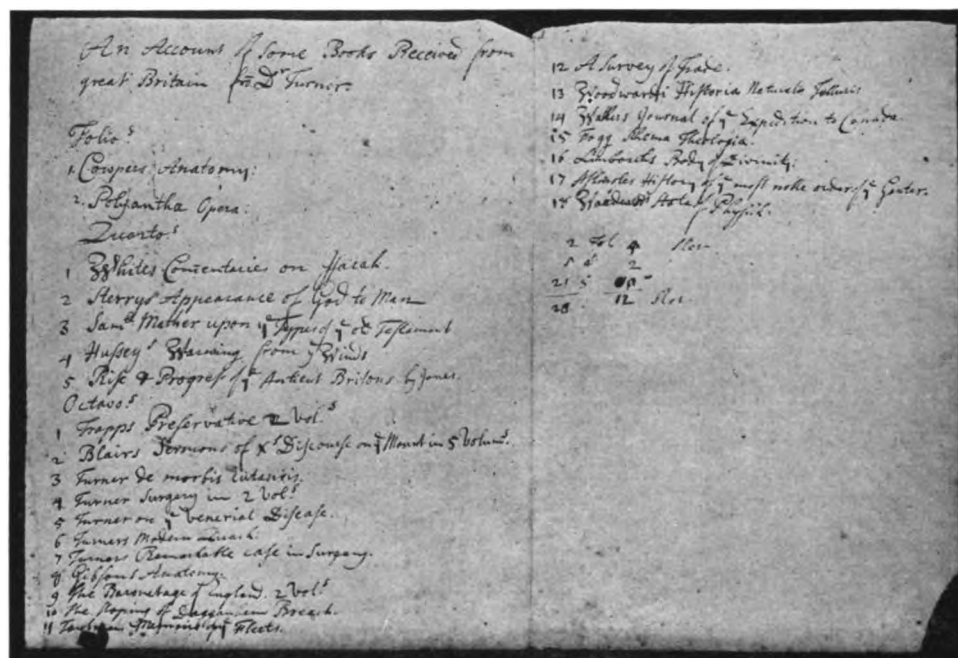 An Account of Some Books Received from
great Britain from Dr Turner
Folios
1. Cowpers Anatomy:
2. Polyantha Opera.
Quartos
1 Whites Comentaries on Isaiah.
2 Sterrys Appearance of God to Man
3 Samll Mather upon ye Types of ye old Testament
4 Husseys Warning from ye Winds
5 Rise & Progress of ye Antient Britons by Jones.
Octavos
1 Trapps Preservative 2 Vols
2 Blairs Sermons of Xs Discourse on ye Mount in 5 Volums.
3 Turner de morbis Cutaneis.
4 Turner Surgery in 2 Vols
5 Turner on ye Venerial Disease.
6 Turners Modern Quack.
7 Turners Remarkable case in Surgery.
8 Gibsons Anatomy.
9 The Baronetage of England. 2 Vols
10 The of in Breach.
11 Memoirs of ye Fleets.
12 A Survey of Trade.
13 Woodwardi Historia Naturalis Telluris
14 Walkers Journal of ye Expedition to Canada
15 Fogg Theologia.
16 Limborchs Body of Divinity:
17 Ashmoles History of ye most noble order of ye Garter.
18 Woodwards State of Physick.
2 Fol 4
5 4 2
21 8
28 12